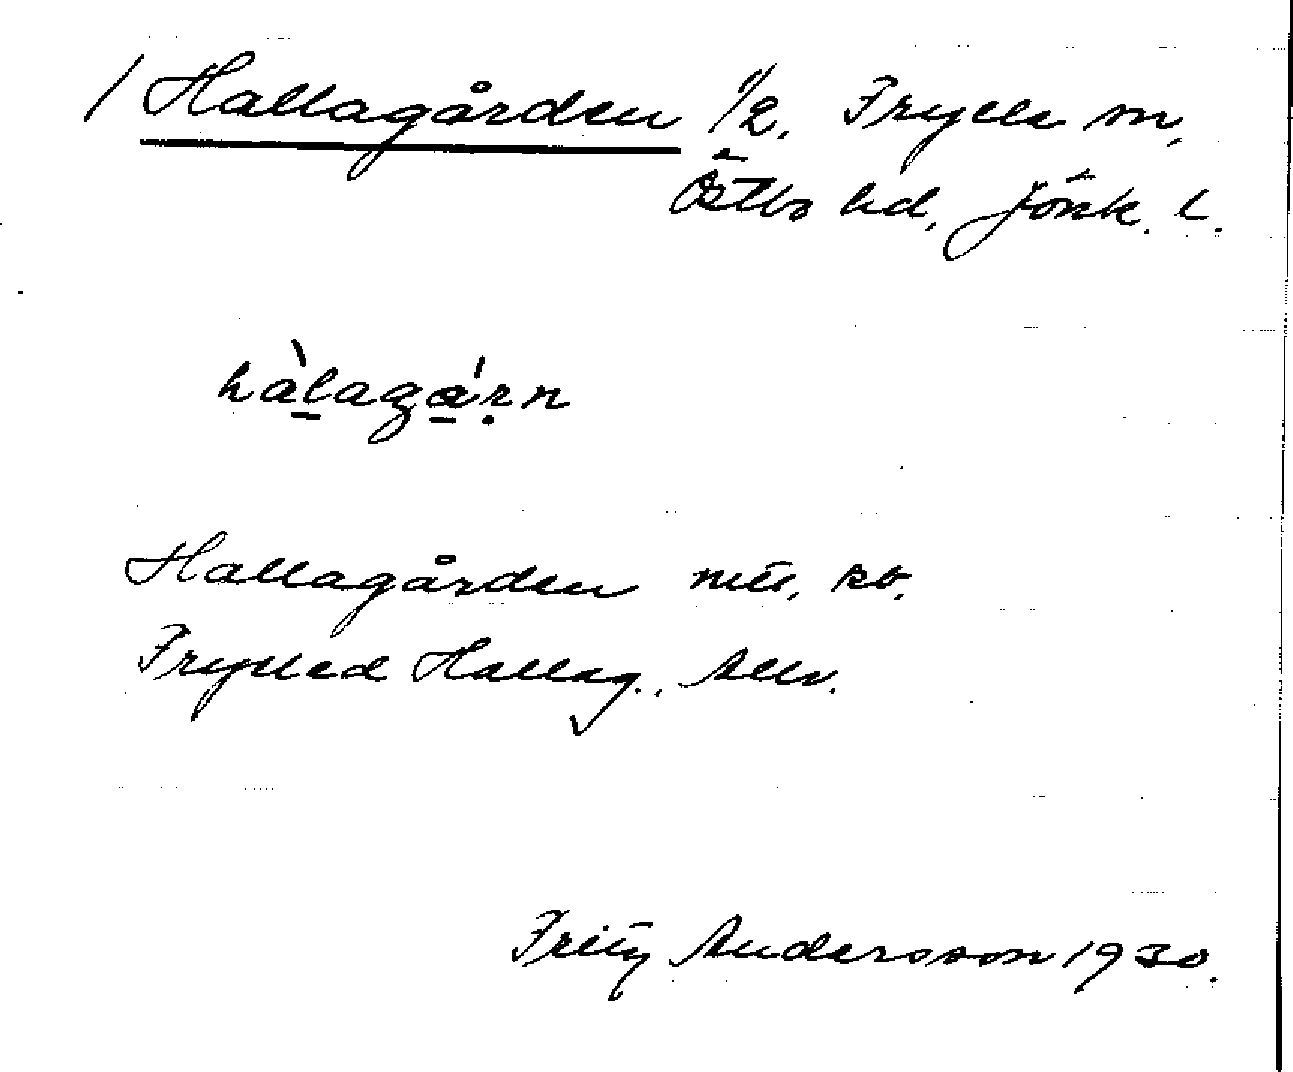 / Hallagården 1/2, Frylle sn,
Östbo hd, Jönk. l.
hàlagá̱rn
Hallagården
Frylled Hallag.,
Fritz Andersson 1930.